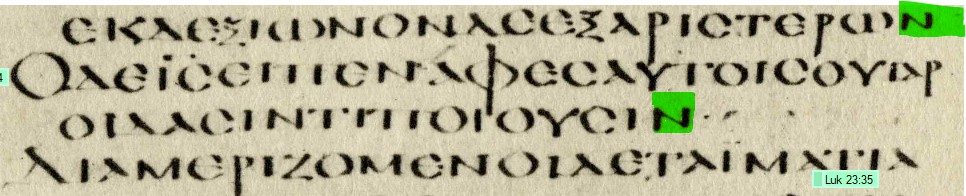 ΕΚΔΕΞΙΩΝΟΝΔΕΕΞΑΡΙϹΤΕΡΩΝ
ΟΔΕΙϹΕΙΠΕΝΑΦΕϹΑΥΤΟΙϹΟΥΓΑΡ
ΟΙΔΑϹΙΝΤΙΠΟΙΟΥϹΙΝ
ΔΙΑΜΕΡΙΖΟΜΕΝΟΙΔΕΤΑΪΜΑΤΙΑ
Luk 23:35